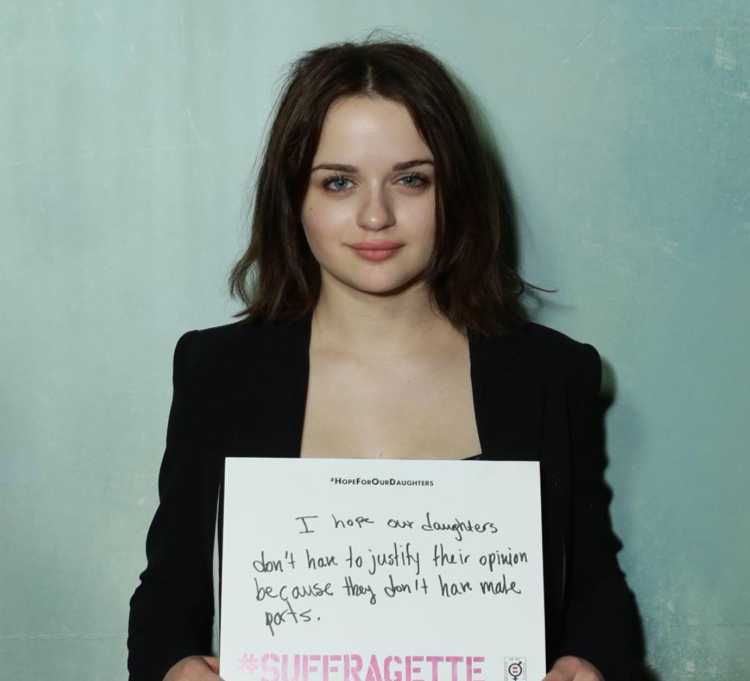 #HOPEFOROURDAUGHTERS
I hope our daughters
don't have to justify their opinion
because they don't have male
parts.
#SUFFRAGETTE